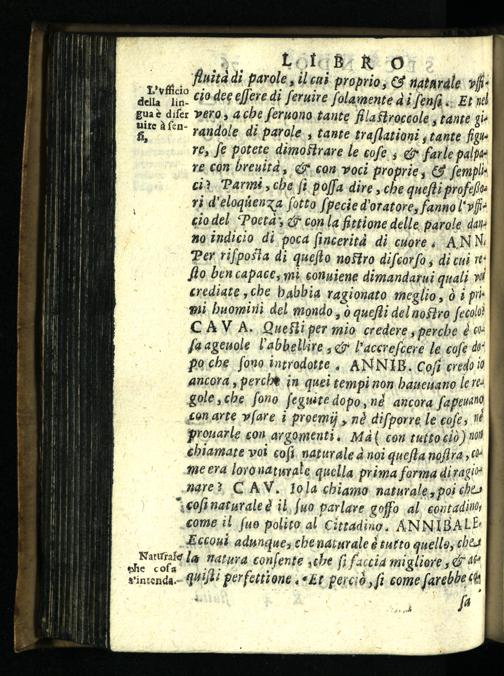 LIBRO
L'vfficio
della lin-
gua è di ser
uire à sen-
si,
fluità di parole, il cui proprio, & naturale vffi-
cio dee essere di seruire solamente à i sensi. Et nel
vero, a che seruono tante filastroccole, tante gi-
randole di parole, tante traslationi, tante figu-
re, se potete dimostrare le cose, & farle palpa-
re con breuità, & con voci proprie, & sempli-
ci? Parmi, che si possa dire, che questi professo-
ri d'eloqüenza sotto specie d'oratore, fanno l'vffi-
cio del Poeta, & con la fittione delle parole dan-
no indicio di poca sincerità di cuore. ANN.
Per risposta di questo nostro discorso, di cui re-
sto ben capace, mi conuiene dimandarui quali voi
crediate, che habbia ragionato meglio, ò i pri-
mi huomini del mondo, ò questi del nostro secolo?
CAVA. Questi per mio credere, perche è co-
sa ageuole l'abbellire, & l'accrescere le cose do-
po che sono introdotte. ANNIB. Cosi credo io
ancora, perche in quei tempi non haueuano le re-
gole, che sono seguite dopo, nè ancora sapeuano
con arte vsare i proemij, nè disporre le cose, nè
prouarle con argomenti. Mà (con tutto ciò) non
chiamate voi così naturale à noi questa nostra, co-
me era loro naturale quella prima forma di ragio-
nare? CAV. Io la chiamo naturale, poi che
così naturale è il suo parlare goffo al contadino,
come il suo polito al Cittadino. ANNIBALE.
Eccoui adunque, che naturale è tutto quello, che
Naturale
che cosa
s'intenda.
la natura consente, che si faccia migliore, & ac-
quisti perfettione. Et perciò, si come sarebbe co-
sa